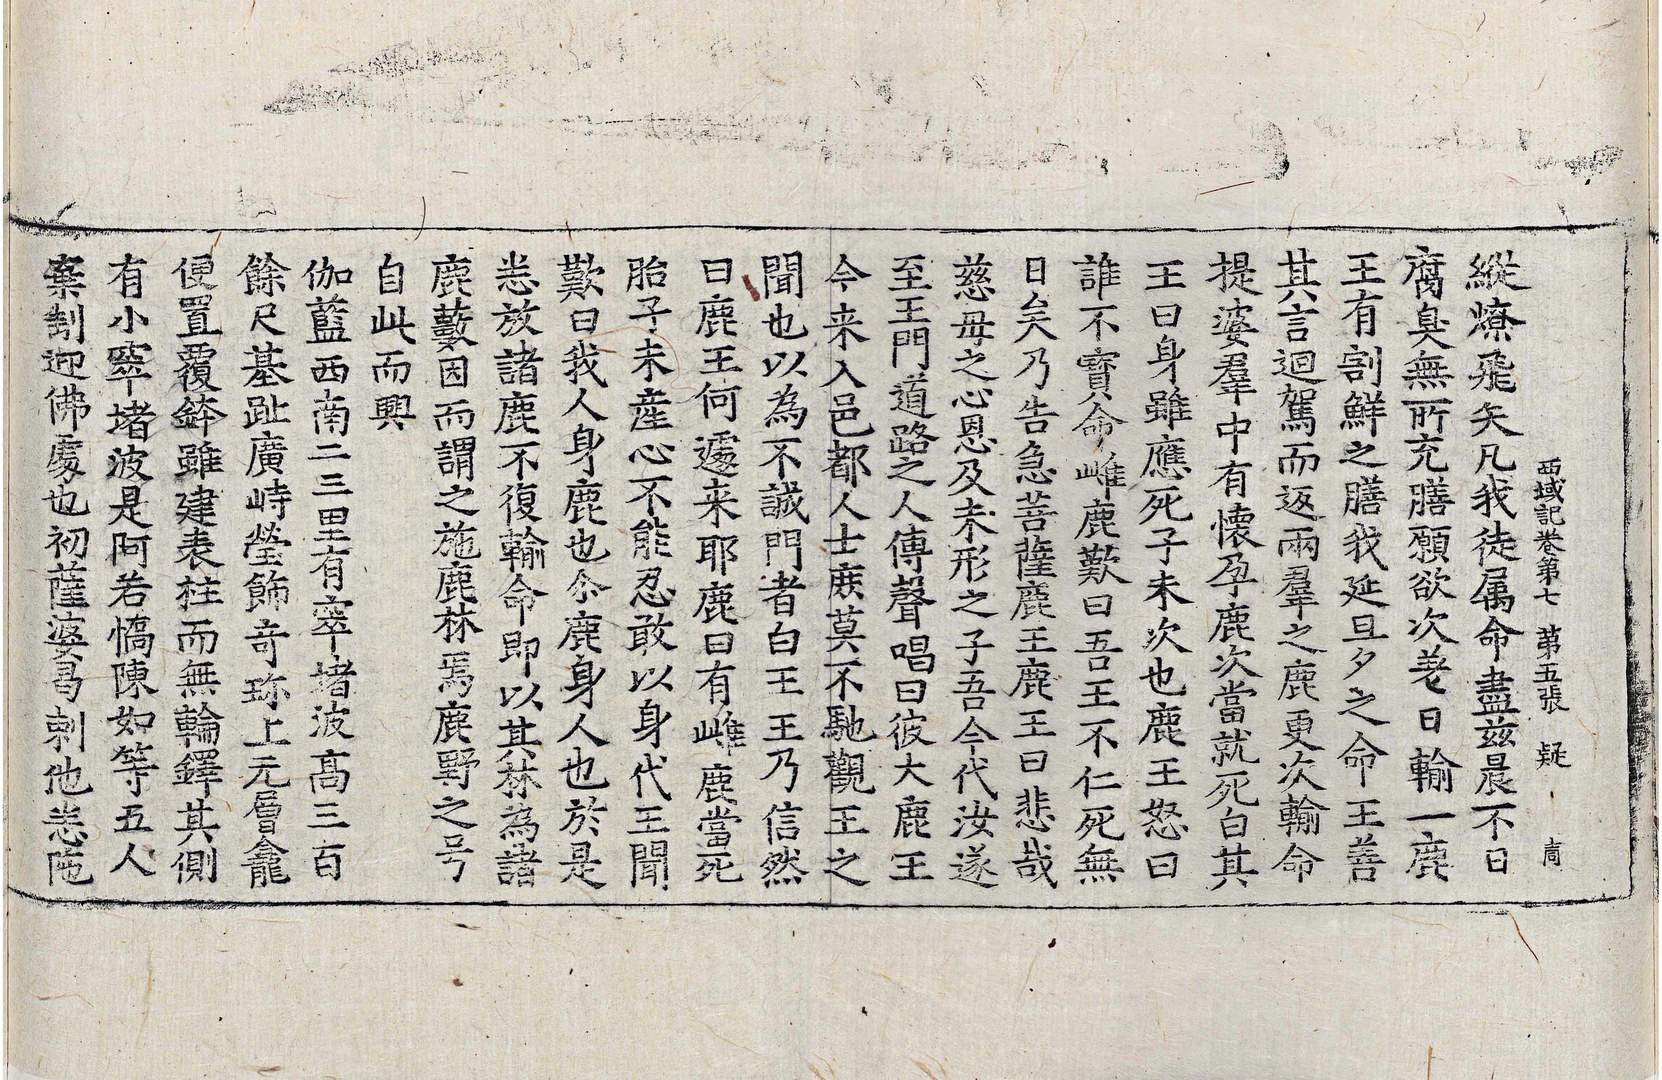 西域記卷第七 第五張 疑
縱燎飛矢凡我徒属命盡茲晨不日
腐臭無所充膳願欲次差日輸一鹿
王有割鮮之膳我延旦夕之命王善
其言迴駕而返兩羣之鹿更次輸命
提婆羣中有懷孕鹿次當就死白其
王曰身雖應死子未次也鹿王怒曰
誰不寶命雌鹿歎曰吾王不仁死無
日矣乃告急菩薩鹿王鹿王曰悲哉
慈母之心恩及未形之子吾今代汝遂
至王門道路之人傳聲唱曰彼大鹿王
今来入邑都人士庶莫不馳觀王之
聞也以為不誠門者白王王乃信然
曰鹿王何遽来耶鹿曰有雌鹿當死
胎子未産心不能忍敢以身代王聞
歎曰我人身鹿也尒鹿身人也於是
悉放諸鹿不復輸命即以其林為諸
鹿藪因而謂之施鹿林焉鹿野之号
自此而興
伽藍西南二三里有窣堵波髙三百
餘尺基趾廣峙瑩飾竒珎上元層龕
便置覆鉢雖建表柱而無輪鐸其側
有小窣堵波是阿若憍陳如等五人
棄制迎佛處也初薩婆曷剌他悉陁